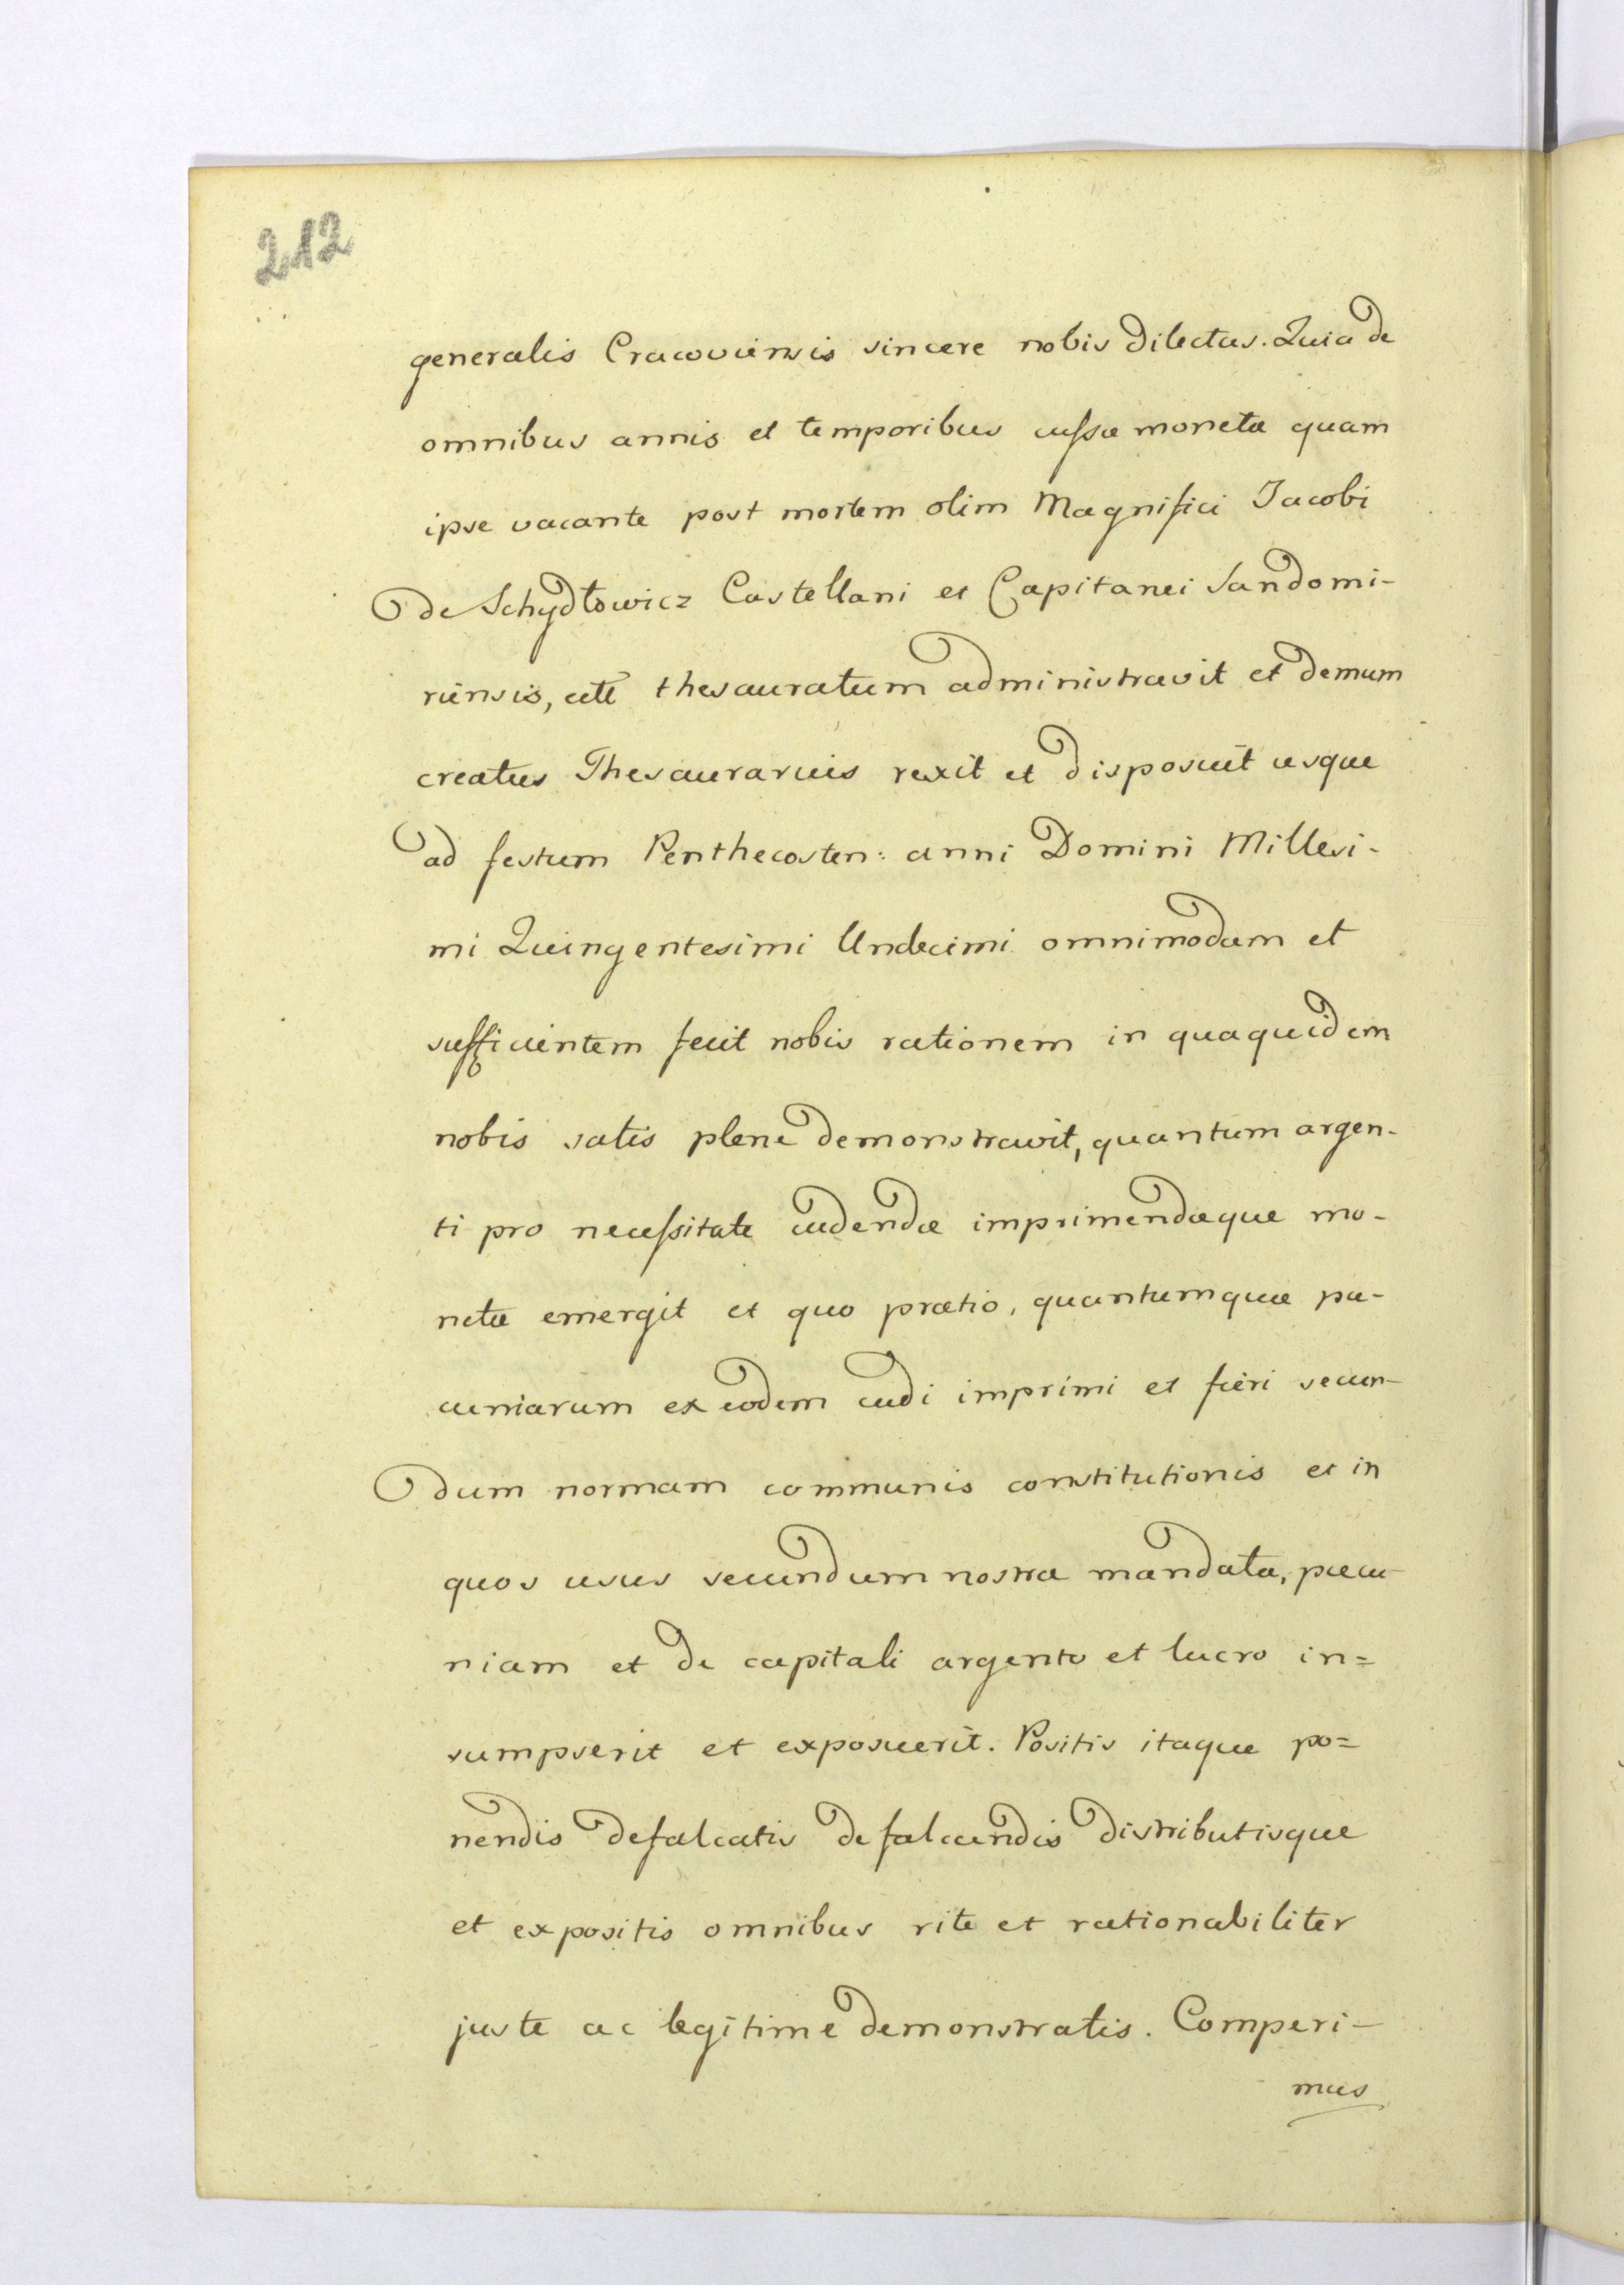 212
generalis Cracoviensis sincere nobis dilectus. Quia de
omnibus annis et temporibus cussæ monetæ quam
ipse vacante post mortem olim Magnifici Jacobi
de Schydłowicz Castellani et Capitanei Sandomi-
riensis, thesauratum administravit et demum
creatus Thesaurarius rexit et disposuit usque
ad festum Penthecosten: anni Domini Millesi-
mi Quingentesimi Undecimi omnimodam et
sufficientem fecit nobis rationem in quaquidem
nobis satis plene demonstravit, quantum argen-
ti pro necessitate cudendæ imprimendæque mo-
netæ emergit et quo prætio, quantumque pe-
cuniarum ex eodem cudi imprimi et fieri secun-
dum normam communis constitutionis et in
quos usus secundum nostra mandata, pecu-
niam et de capitali argento et lucro in=
sumpserit et exposuerit. Positis itaque po=
nendis defalcatis defalcandis distributisque
et expositis omnibus rite et rationabiliter
juste ac legitime demonstratis. Comperi-
mus